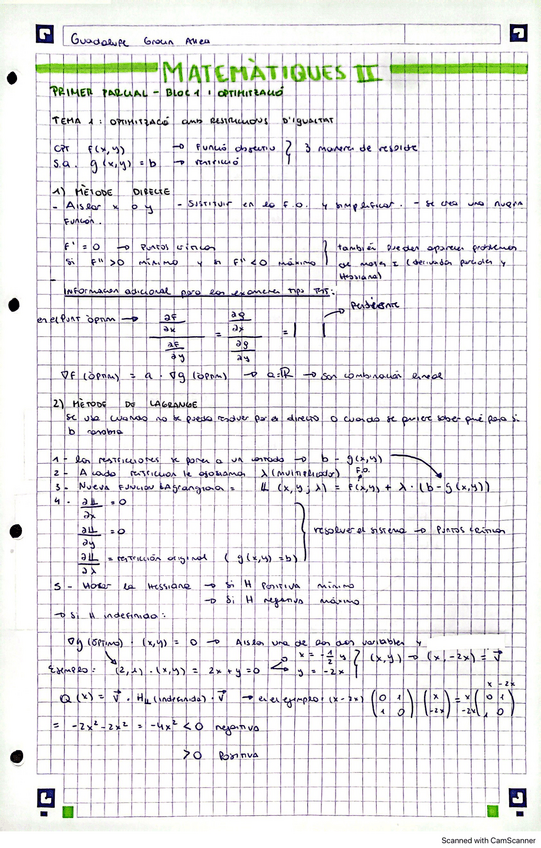 Guadalupe
MATEMÀTIQUES II
PRIMER PARCIAL - BLOC 1 : OPTIMITZACIÓ
TEMA 1 : OPTIMITZACIÓ AMB RESTRICCIONS D'IGUALTAT
OPT f(x,y) → Funció objectiu } 3 maneres de resoldre
S.a. g(x,y) = b → restricció
1) MÈTODE DIRECTE
- Aislar x o y - Sustituir en la F.O. y simplificar. - Se crea una nueva
Función.
F' = 0 → Puntos críticos } también pueden aparecer problemas
Si F'' > 0 mínimo y si F'' < 0 máximo } de (derivadas parciales y
Hessiana)
- Información adicional para los examenes tipo TEST:
en el punt òptim → ∂F/∂x / ∂F/∂y = ∂g/∂x / ∂g/∂y = | | → Pendiente
∇F (òptim) = a · ∇g (òptim) → a=ℝ → Son combinación lineal
2) MÈTODE DE LAGRANGE
Se usa cuando no se puede resolver por el directo o cuando se quiere saber qué pasa si
b cambia
1 - Las restricciones se ponen a un costado → b - g(x,y)
2 - A cada restricción le asociamos λ (multiplicador) F.O.
3 - Nueva Función Lagrangiana = 𝕃 (x,y;λ) = f(x,y) + λ · (b - g(x,y))
4 - ∂𝕃/∂x = 0
∂𝕃/∂y = 0 } resolver el sistema → Puntos críticos
∂𝕃/∂λ = restricción original ( g(x,y) = b)
5 - Hacer la Hessiana → Si H Positiva mínimo
→ Si H negativa máximo
→ Si H indefinido:
∇g (òptimo) · (x,y) = 0 → Aislar una de las dos variables y
Ejemplo: (2,1) · (x,y) = 2x + y = 0 x = -1/2 y y = -2x } (x,y) → (x,-2x) = v⃗
Q (x) = v⃗ · H𝕃 (indefinida) · v⃗ → en el ejemplo: (x -2x) (0 1 1 0) (x -2x) = x -2x (0 1 1 0) x -2x
= -2x² - 2x² = -4x² < 0 negativa
> 0 Positiva
Scanned with CamScanner